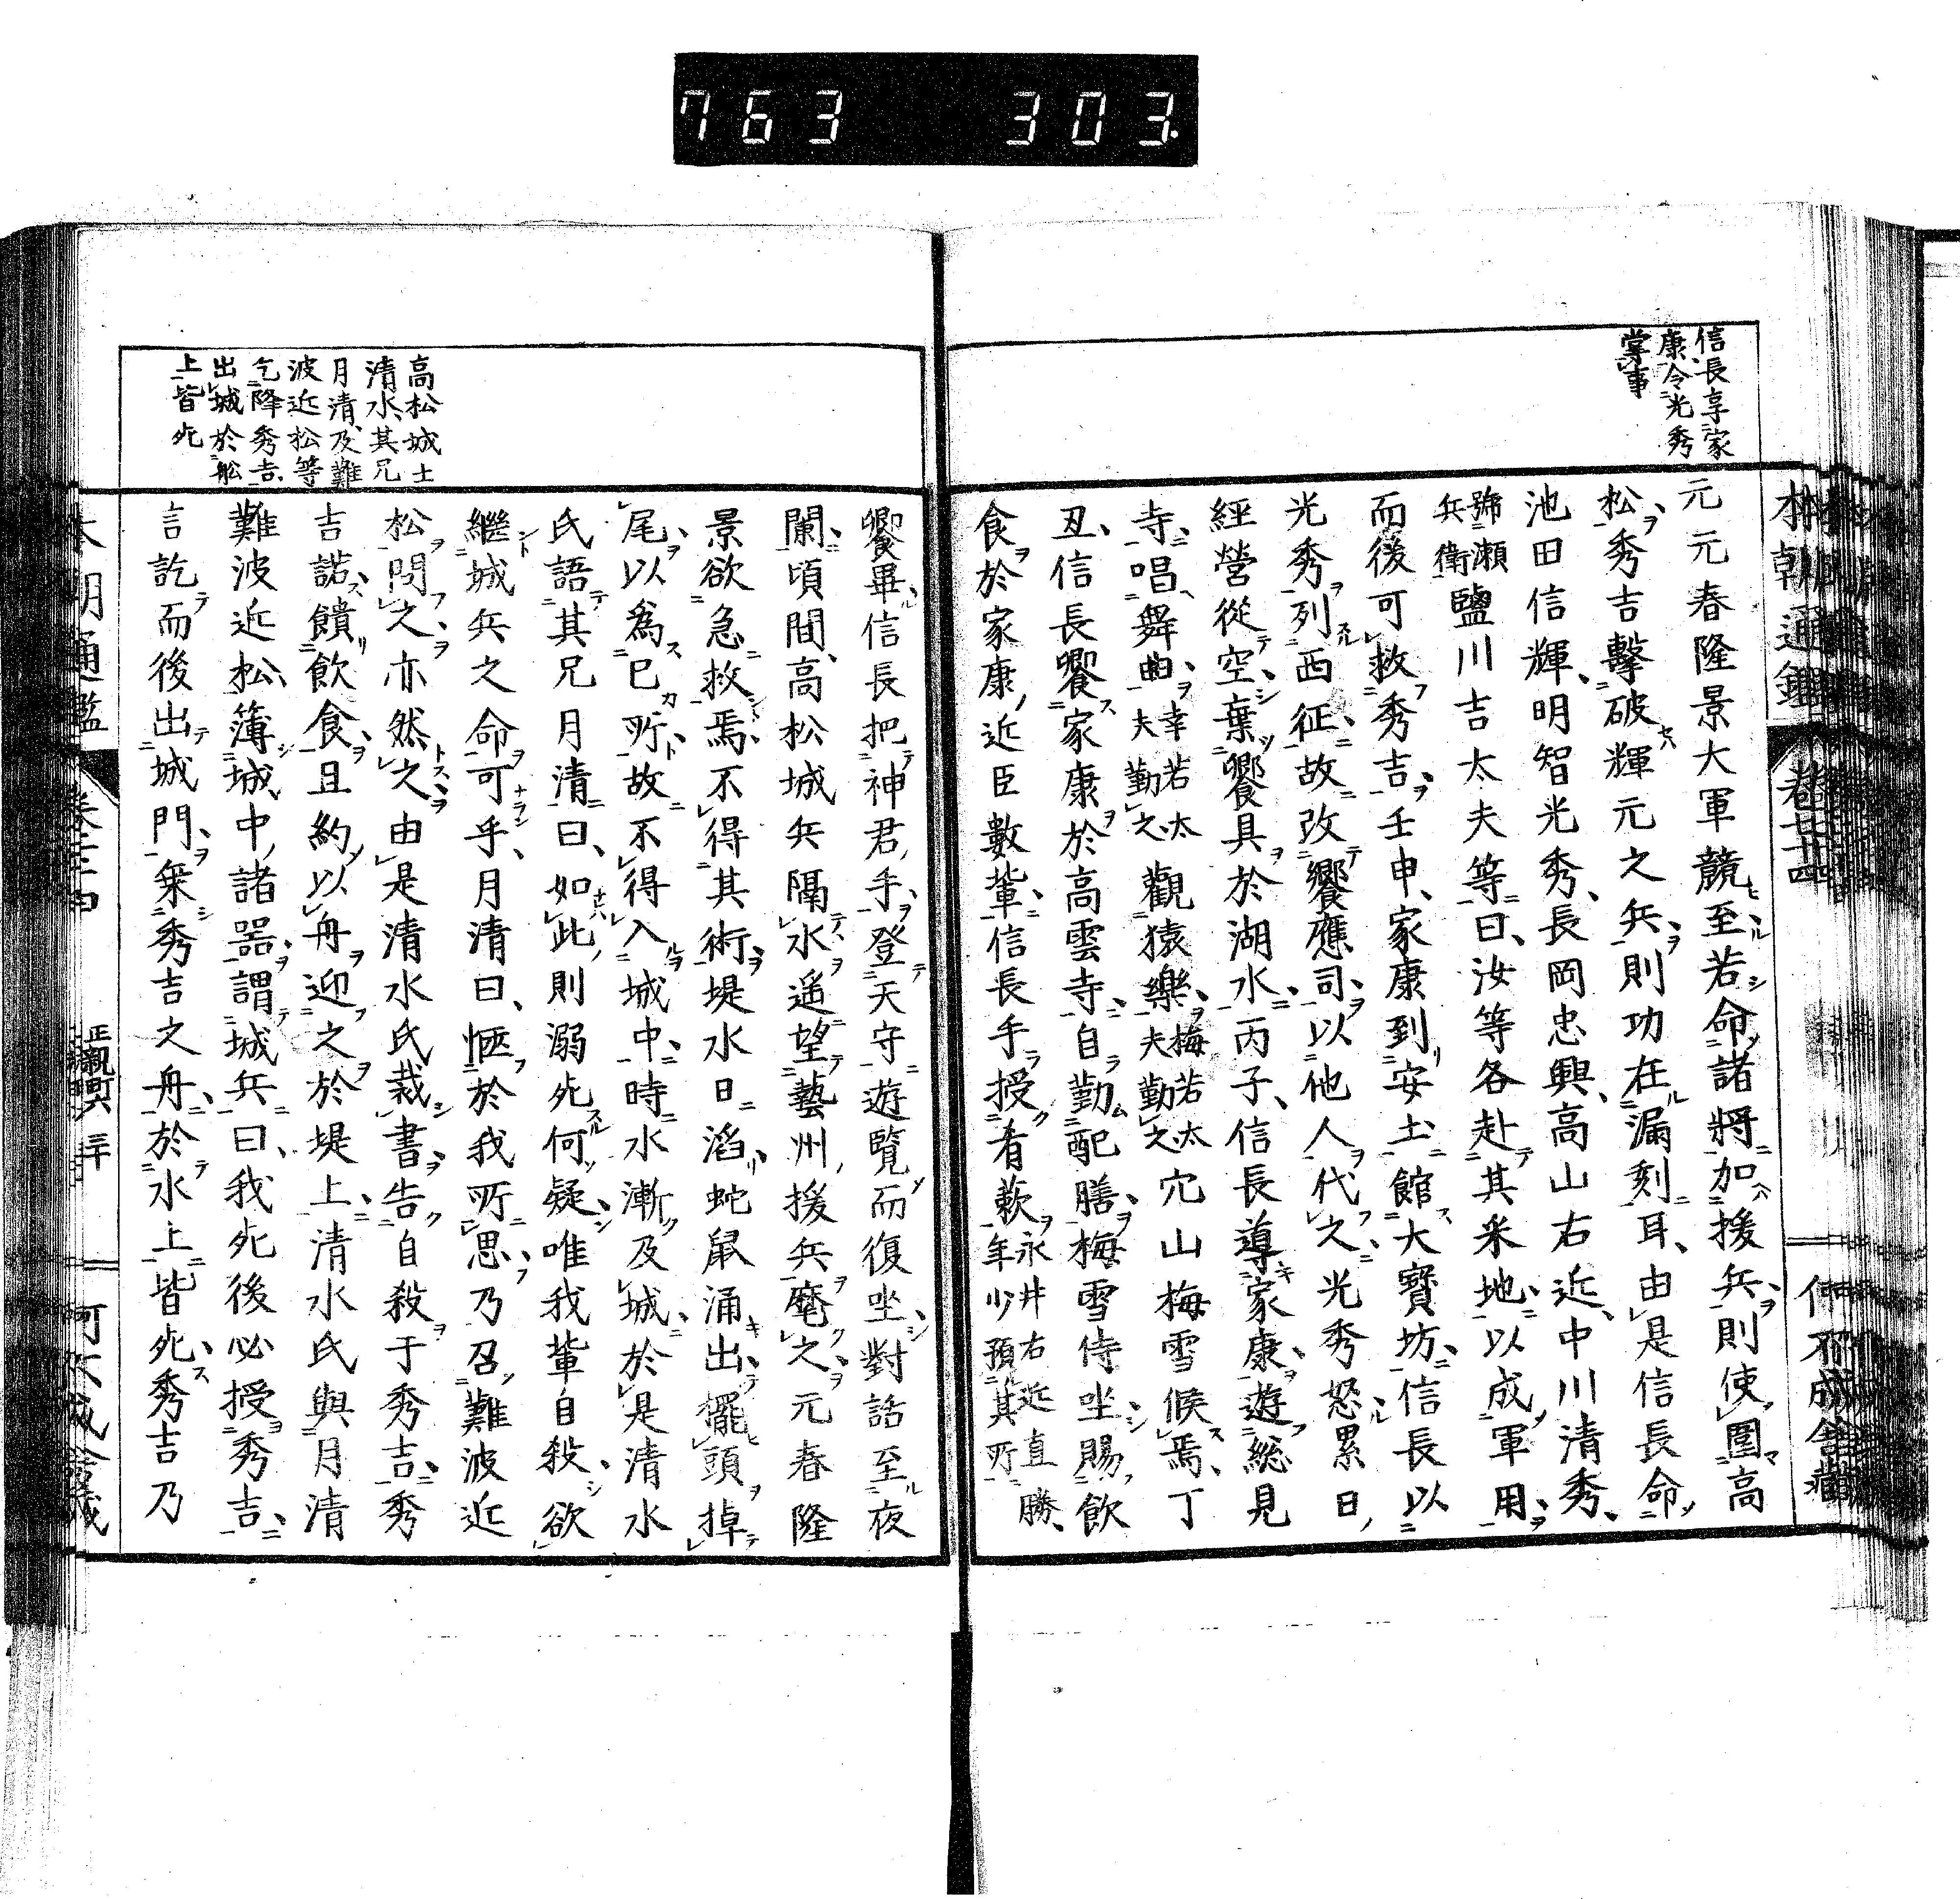 763 303.
信長享家
康、令光秀
掌事
元元春隆景大軍競至若命諸將加援兵則使圍高
松秀吉擊破輝元之兵則功在漏刻耳由是信長命
池田信輝、明智光秀、長岡忠興、高山右近、中川清秀、
號瀬
兵衛
鹽川吉太夫等曰、汝等各赴其采地以成軍用
而後可救秀吉壬申、家康到安土館大寶坊信長以
光秀列西征故改饗應司以他人代之光秀怒累日
經營從空棄饗具於湖水丙子、信長導家康遊總見
寺唱舞曲
幸若太
夫勤之
觀猿樂
梅若太
夫勤之
穴山梅雪候焉、丁
丑、信長饗家康於高雲寺自勤配膳梅雪侍坐賜飲
食於家康近臣數輩信長手授肴蔌
永井右近直勝、
年少預其所
本朝通鑑
卷廿四
高松城士
清水、其兄
月清、及難
波近松等
乞降秀吉、
出城於船
上皆死
饗畢信長把神君手登天守遊覽而復坐對話至夜
闌頃間、高松城兵隔水遥望藝州援兵麾之元春隆
景欲急救焉不得其術堤水日滔蛇鼠涌出擺頭掉
尾以爲已所故不得入城中時水漸及城於是清水
氏語其兄月清曰、如此則溺死何疑唯我輩自殺欲
繼城兵之命可乎、月清曰、愜於我所思乃召難波近
松問之亦然之由是清水氏裁書告自殺于秀吉秀
吉諾饋飲食且約以舟迎之於堤上清水氏與月清
難波近松簿城中諸器謂城兵曰、我死後必授秀吉
言訖而後出城門乘秀吉之舟於水上皆死秀吉乃
本朝通鑑